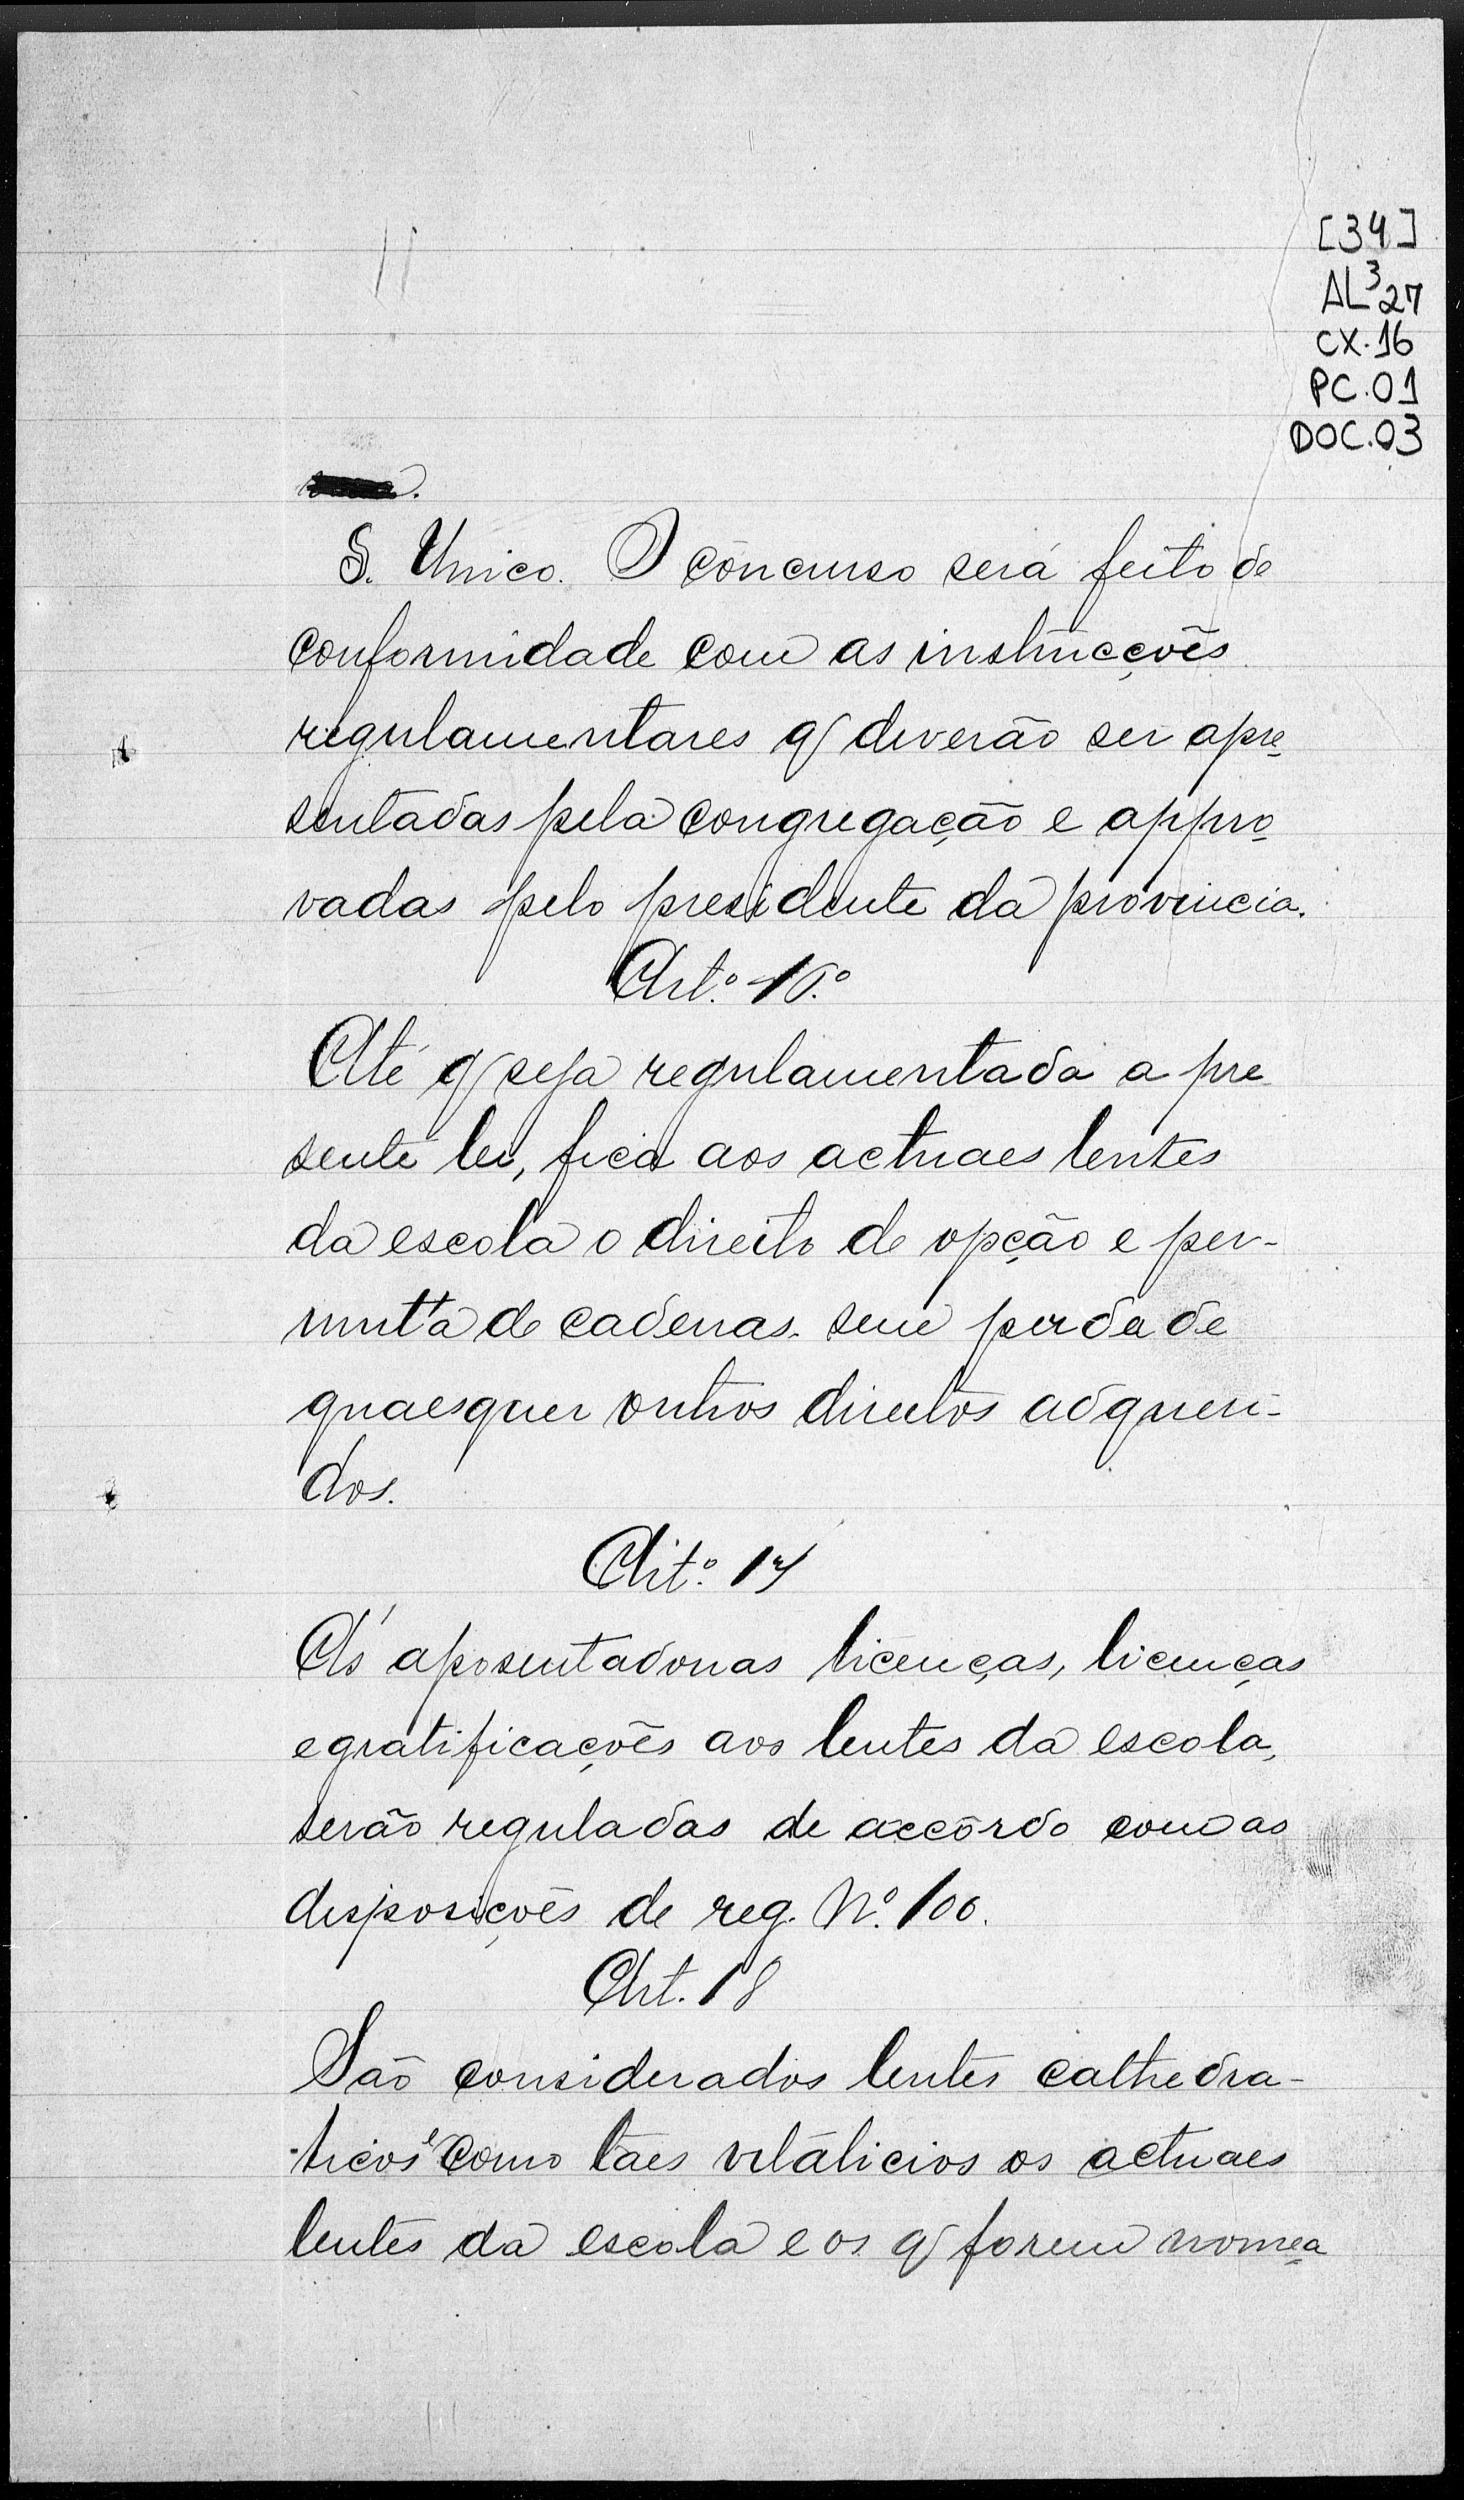 [34]
AL³27
CX.16
PC.01
DOC.03
§. Unico. O concurso será feito de
conformidade com as instrucções
regulamentares q/ deverão ser apre
sentadas pela congregação e appro
vadas pelo presidente da provincia.
Art.º 16.º
Até q/ seja regulamentada a pre
sente lei, fica aos actuaes lentes
da escola o direito de opção e per-
muta de cadeiras. sem perda de
quaesquer outros direitos adqueri-
dos.
Art.º 17
As aposentadorias licenças, licenças
e gratificações aos lentes da escola,
serão reguladas de accôrdo com as
disposições de reg. Nº. 100.
Art. 18
São considerados lentes cathedra-
ticos e como taes vitalicios os actuaes
lentes da escola e os q/ forem nomea